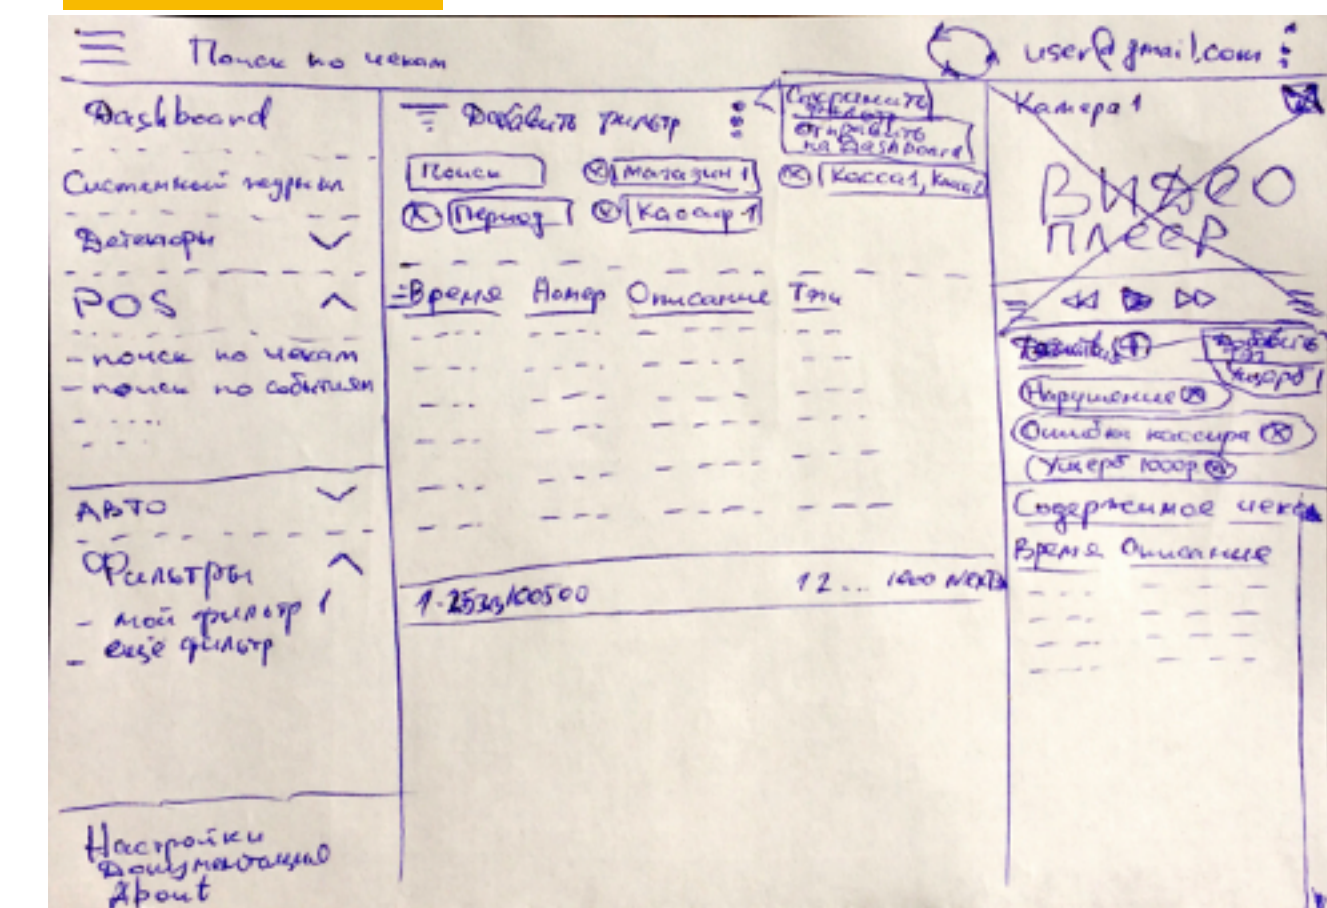 Поиск по чекам
user@gmail.com
Dashboard
Системный журнал
Детекторы
POS
- поиск по чекам
- поиск по событиям
Авто
Фильтры
- мой фильтр 1
- ещё фильтр
Настройки
Документация
About
Добавить фильтр
Сохранить фильтр
Отправить на Dashboard
Поиск
Магазин 1
Касса1, Касса2
Период
Кассир 1
Время Номер Описание Тэги
1-25из100500
1 2 ... 1000 NEXT>
Камера 1
ВИДЕО
ПЛЕЕР
Добавить
тэг
Ущерб
Нарушение
Ошибка кассира
Ущерб 1000р
Содержимое чека
Время Описание